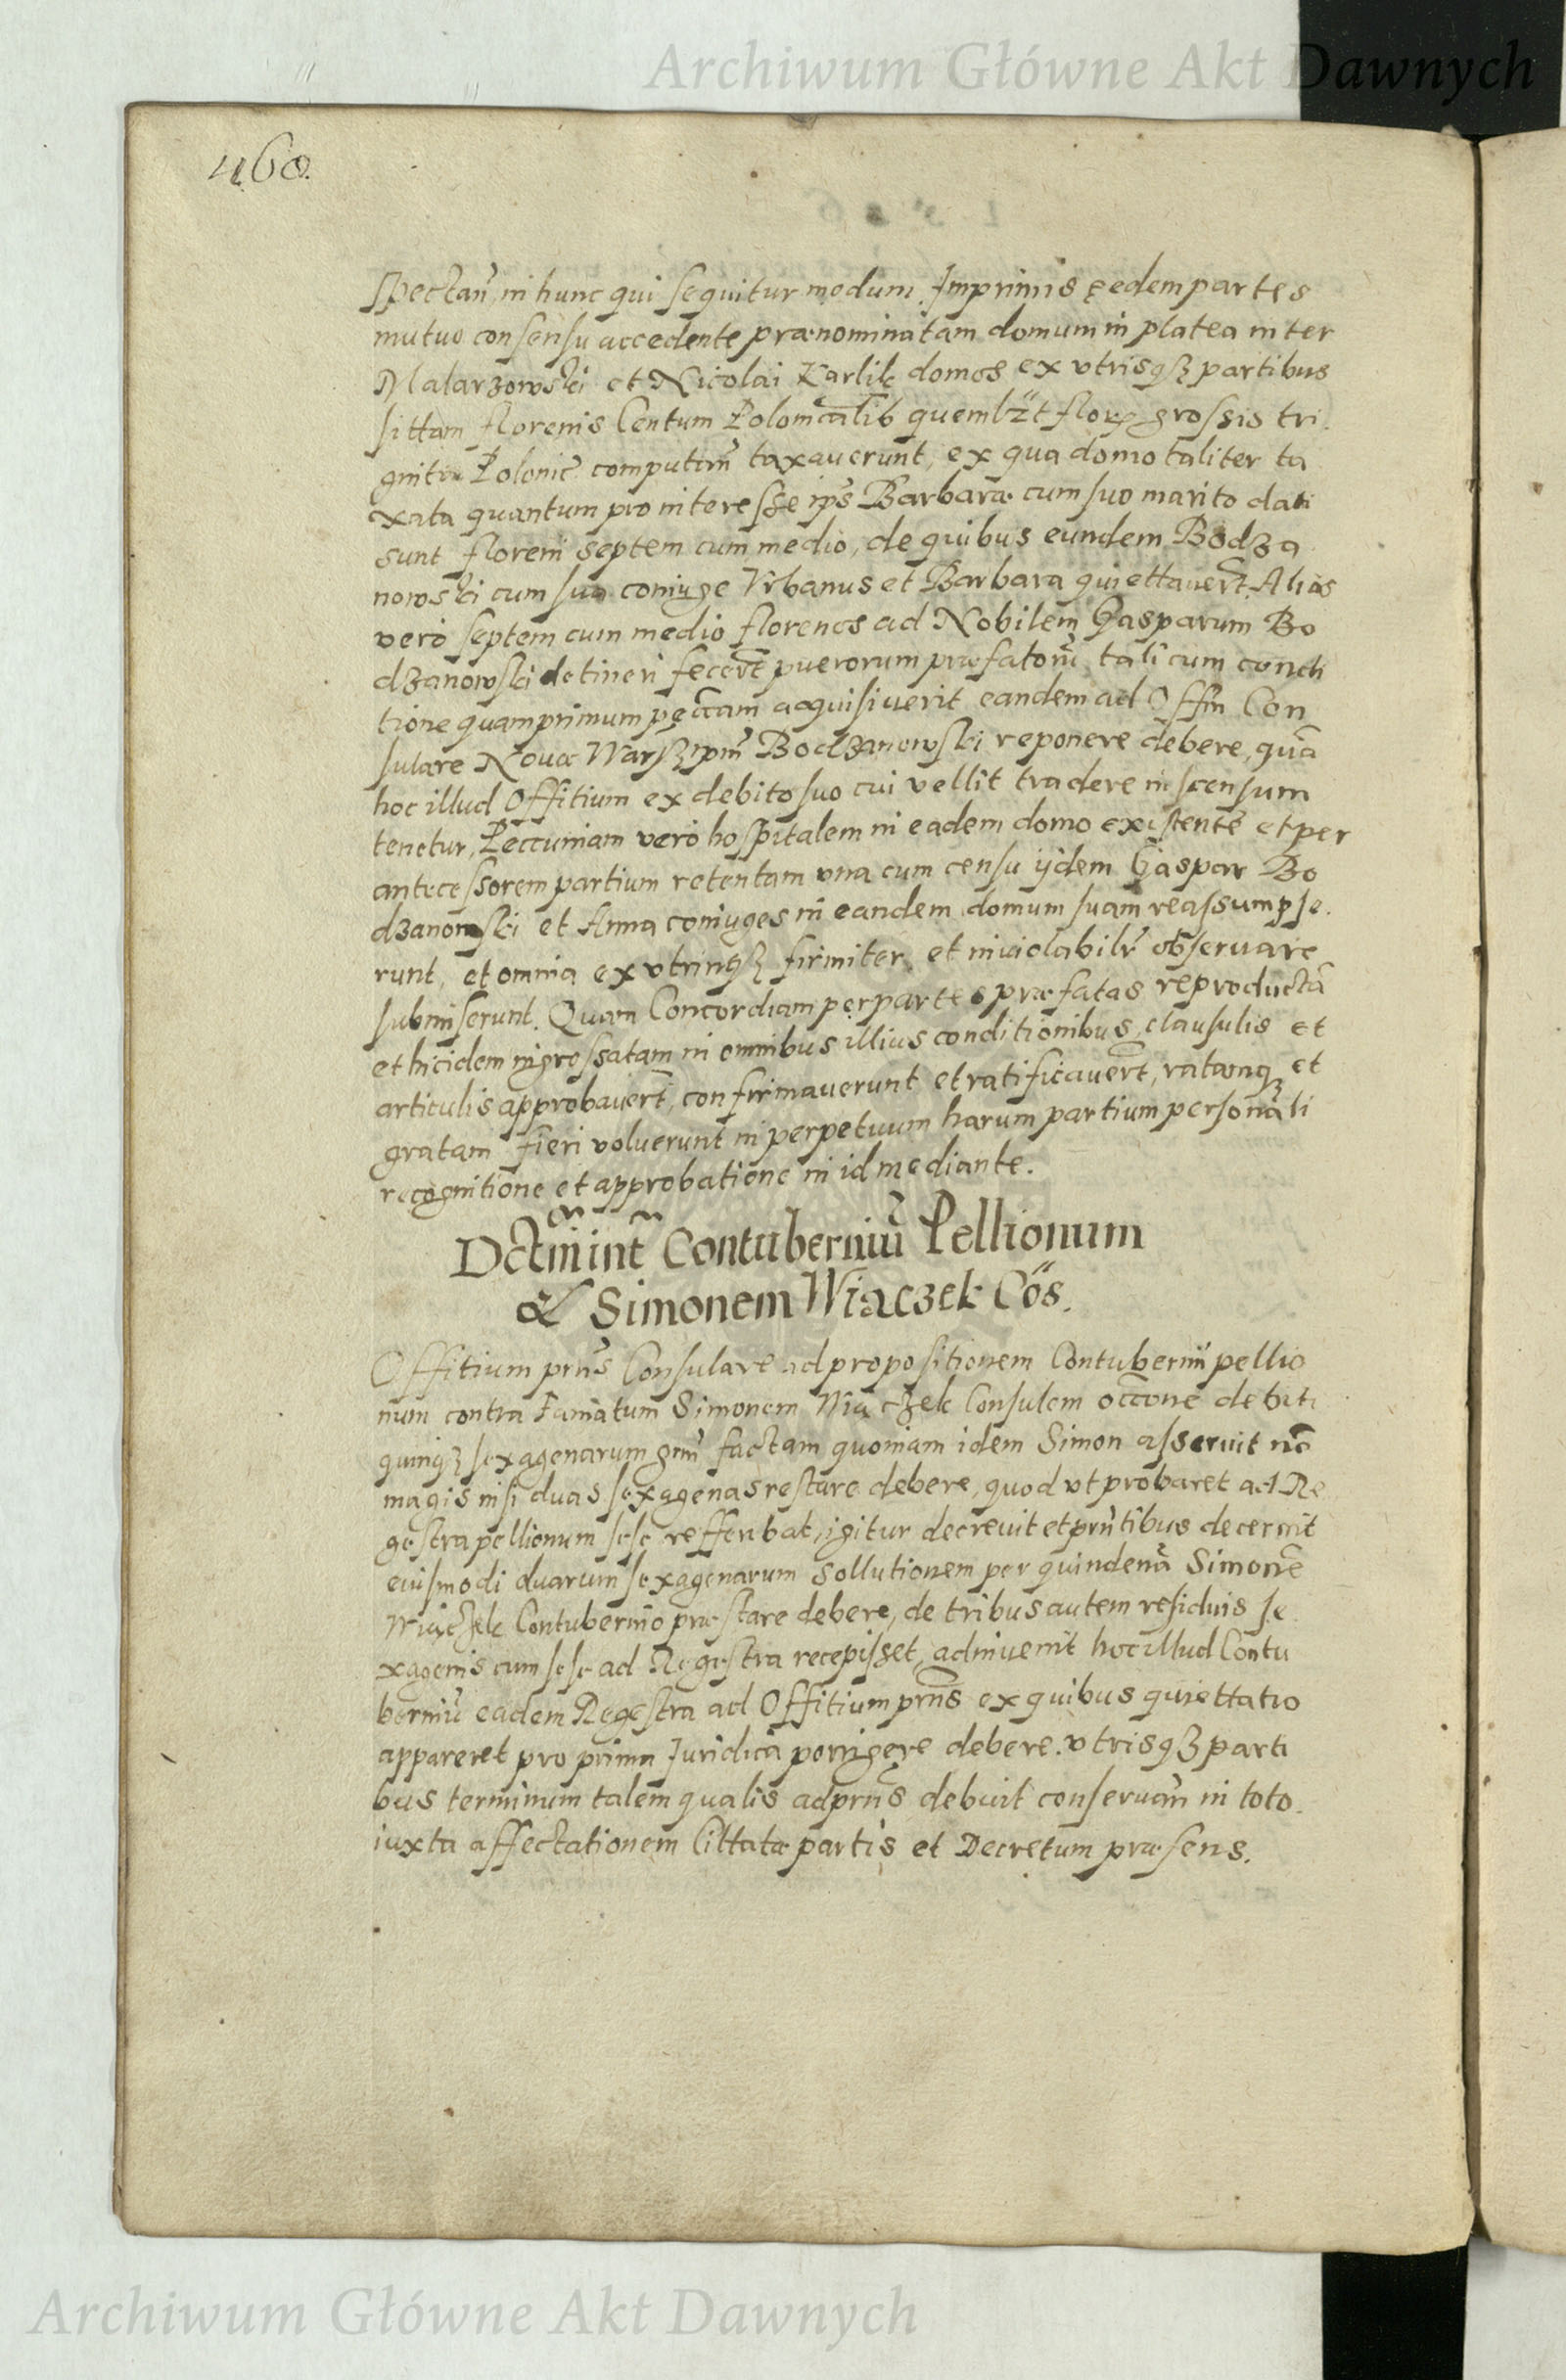 Archiwum Główne Akt Dawnych
460.
spectan̄ in hunc qui sequitur modum. Imprimis eędem partes
mutuo consensu accedente prænominatam domum in platea inter
Malarzowski et Nicolai Karlik domos ex vtrisqʒ partibus
sittam florenis Centum Polonicalib quemlʒt flor grossis tri
ginta Polonic̄ computan̄ taxauerunt, ex qua domo taliter ta
xata quantum pro interesse ip̄s Barbaræ cum suo marito dati
sunt floreni septem cum medio, de quibus eundem Bodza
nowski cum sua coniuge Vrbanus et Barbara quiettauer̄t. Alios
verò septem cum medio florenos ad Nobilem Gasparum Bo
dzanowski detineri fecer̄t puerorum præfator̄u, tali cum condi
tione quamprimum pęc̄cam acquisiuerit eandem ad Off̄m Con
sulare Nouæ Warsz ip̄m Bodzanowski reponere debere, quā
hoc illud Offitium ex debito suo cui vellit tradere in scensum
tenetur, Peccuniam verò hospitalem in eadem domo existentē et per
antecessorem partium retentam vna cum censu ijdem Gaspar Bo
dzanowski et Anna coniuges in eandem domum suam reassumpse
runt, et omnia ex vtrinqʒ firmiter et inuiolabilr̄ obseruare
submiserunt. Quam Concordiam per partes præfatas reproductā
et hicidem ingrossatam in omnibus illius conditionibus clausulis et
articulis approbauer̄t, confirmauerunt et ratificauer̄t, ratamqʒ et
gratam fieri voluerunt in perpetuum harum partium personali
recognitione et approbatione in id mediante.
Dct̄m int̄ Contuberniū Pellionum
& Simonem Wiączek Cōs.
Offitium prn̄s Consulare ad propositionem Contubernij pellio
num contra Famatum Simonem Wiączek Consulem occ̄one debiti
quinqʒ sexagenarum gr̄m factam quoniam idem Simon asseruit nō
magis nisi duas sexagenas restare debere, quod vt probaret ad Re
gestra pellionum sese refferebat, igitur decreuit et prn̄tibus decernit
eiusmodi duarum sexagenarum sollutionem per quindenā Simonē
Wiączek Contubernio præstare debere, de tribus autem residuis se
xagenis cum sese ad Regestra recepisset, adinuenit hoc illud Contu
berniū eadem Regestra ad Offitium prn̄s ex quibus quiettatio
appareret pro prima Juridica porrigere debere. vtrisqʒ parti
bus terminum talem qualis ad prn̄s debuit conseruan̄ in toto
iuxta affectationem Cittatæ partis et Decretum præsens.
Archiwum Główne Akt Dawnych